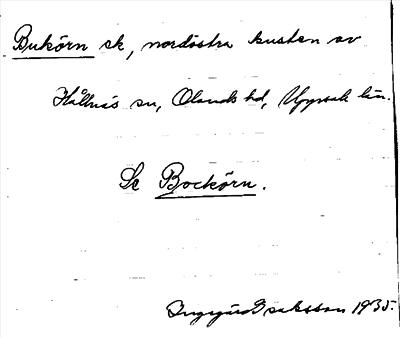 Bukörn sk, nordöstra kusten av
Hållnäs sn, Olands hd, Uppsala län.
Se Bockörn.
Ingegärd Eriksson 1935.